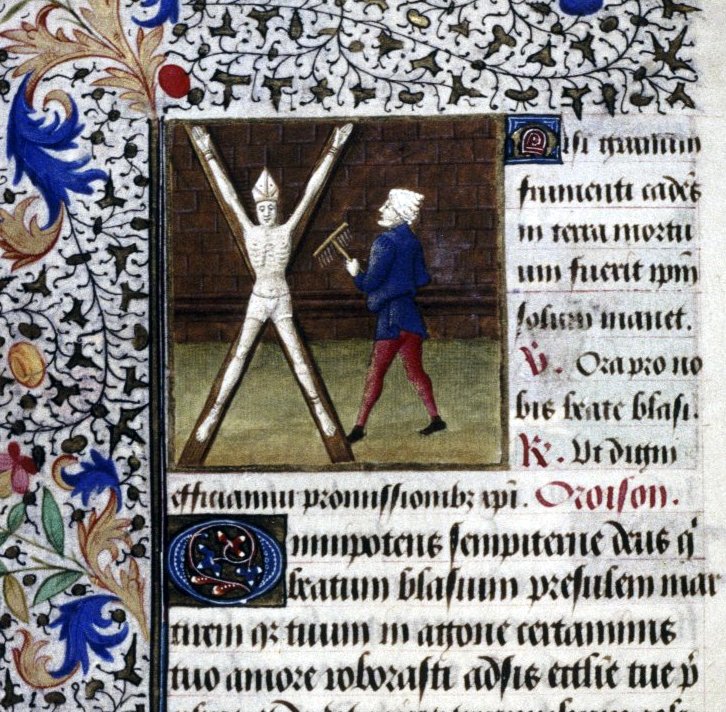 Nisi granum
frumenti cadēs
in terra mortu
um fuerit ipm̄
solum manet.
℣. Ora pro no
bis beate blasi.
℟. Ut digni
efficiamur promissionibꝫ xp̄i. Oroison.
Omnipotens sempiterne deus q
beatum blasium presulem mar
tirem qꝫ tuum in agone certaminis
tuo amore roborasti adsis ecclīe tue p̄